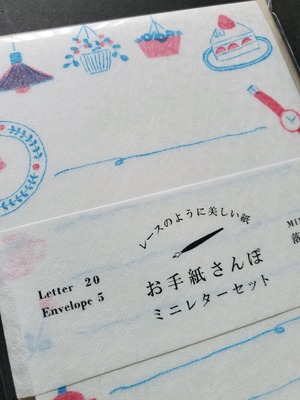 レースのように美しい紙
Letter 20
Envelope 5
お手紙さんぽ
ミニレターセット